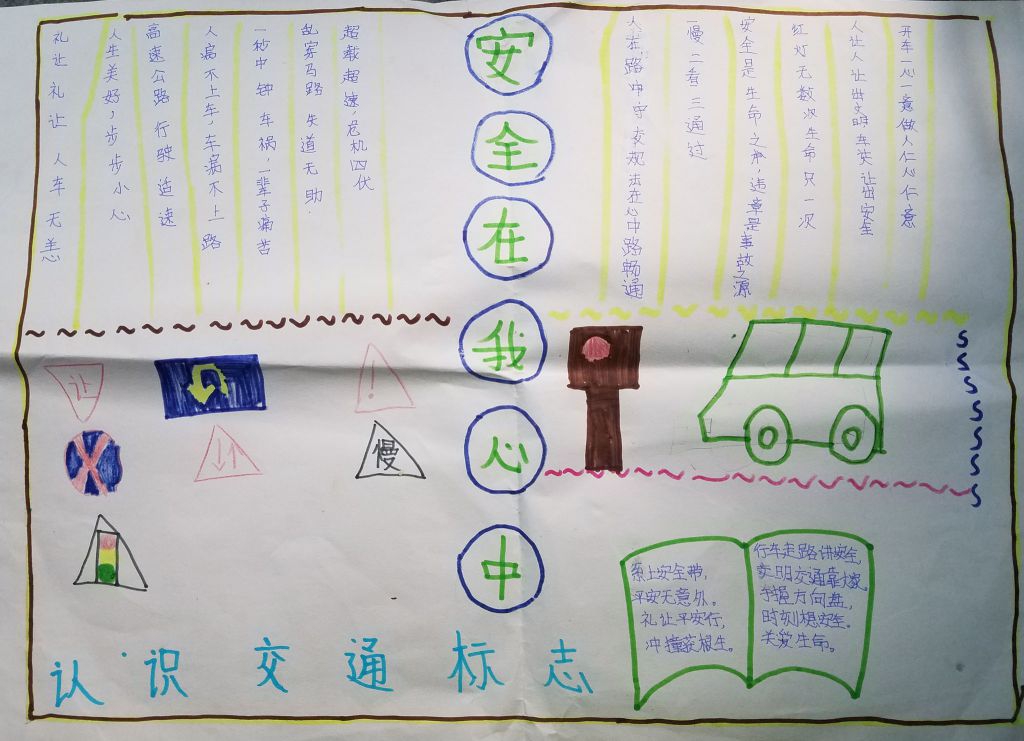 安全在我心中
开车一心一意做人仁心仁意
人让人让出文明车让车让出安全
红灯无数次生命只一次
安全是生命之本，违章是事故之源
一慢二看三通过
人在路中守交规法在心中路畅通
超载超速，危机四伏
乱穿马路 失道无助.
一秒中 钟 车祸，一辈子痛苦
人病不上车，车病不上路
高速公路行驶适速
人生美好，步步小心
礼让 礼让 人车无恙
让
!
慢
系上安全带，
平安无意外。
礼让平安行，
行车走路讲安全，
文明交通靠大家，
手握方向盘，
时刻想安全。
关爱生命。
认识交通标志